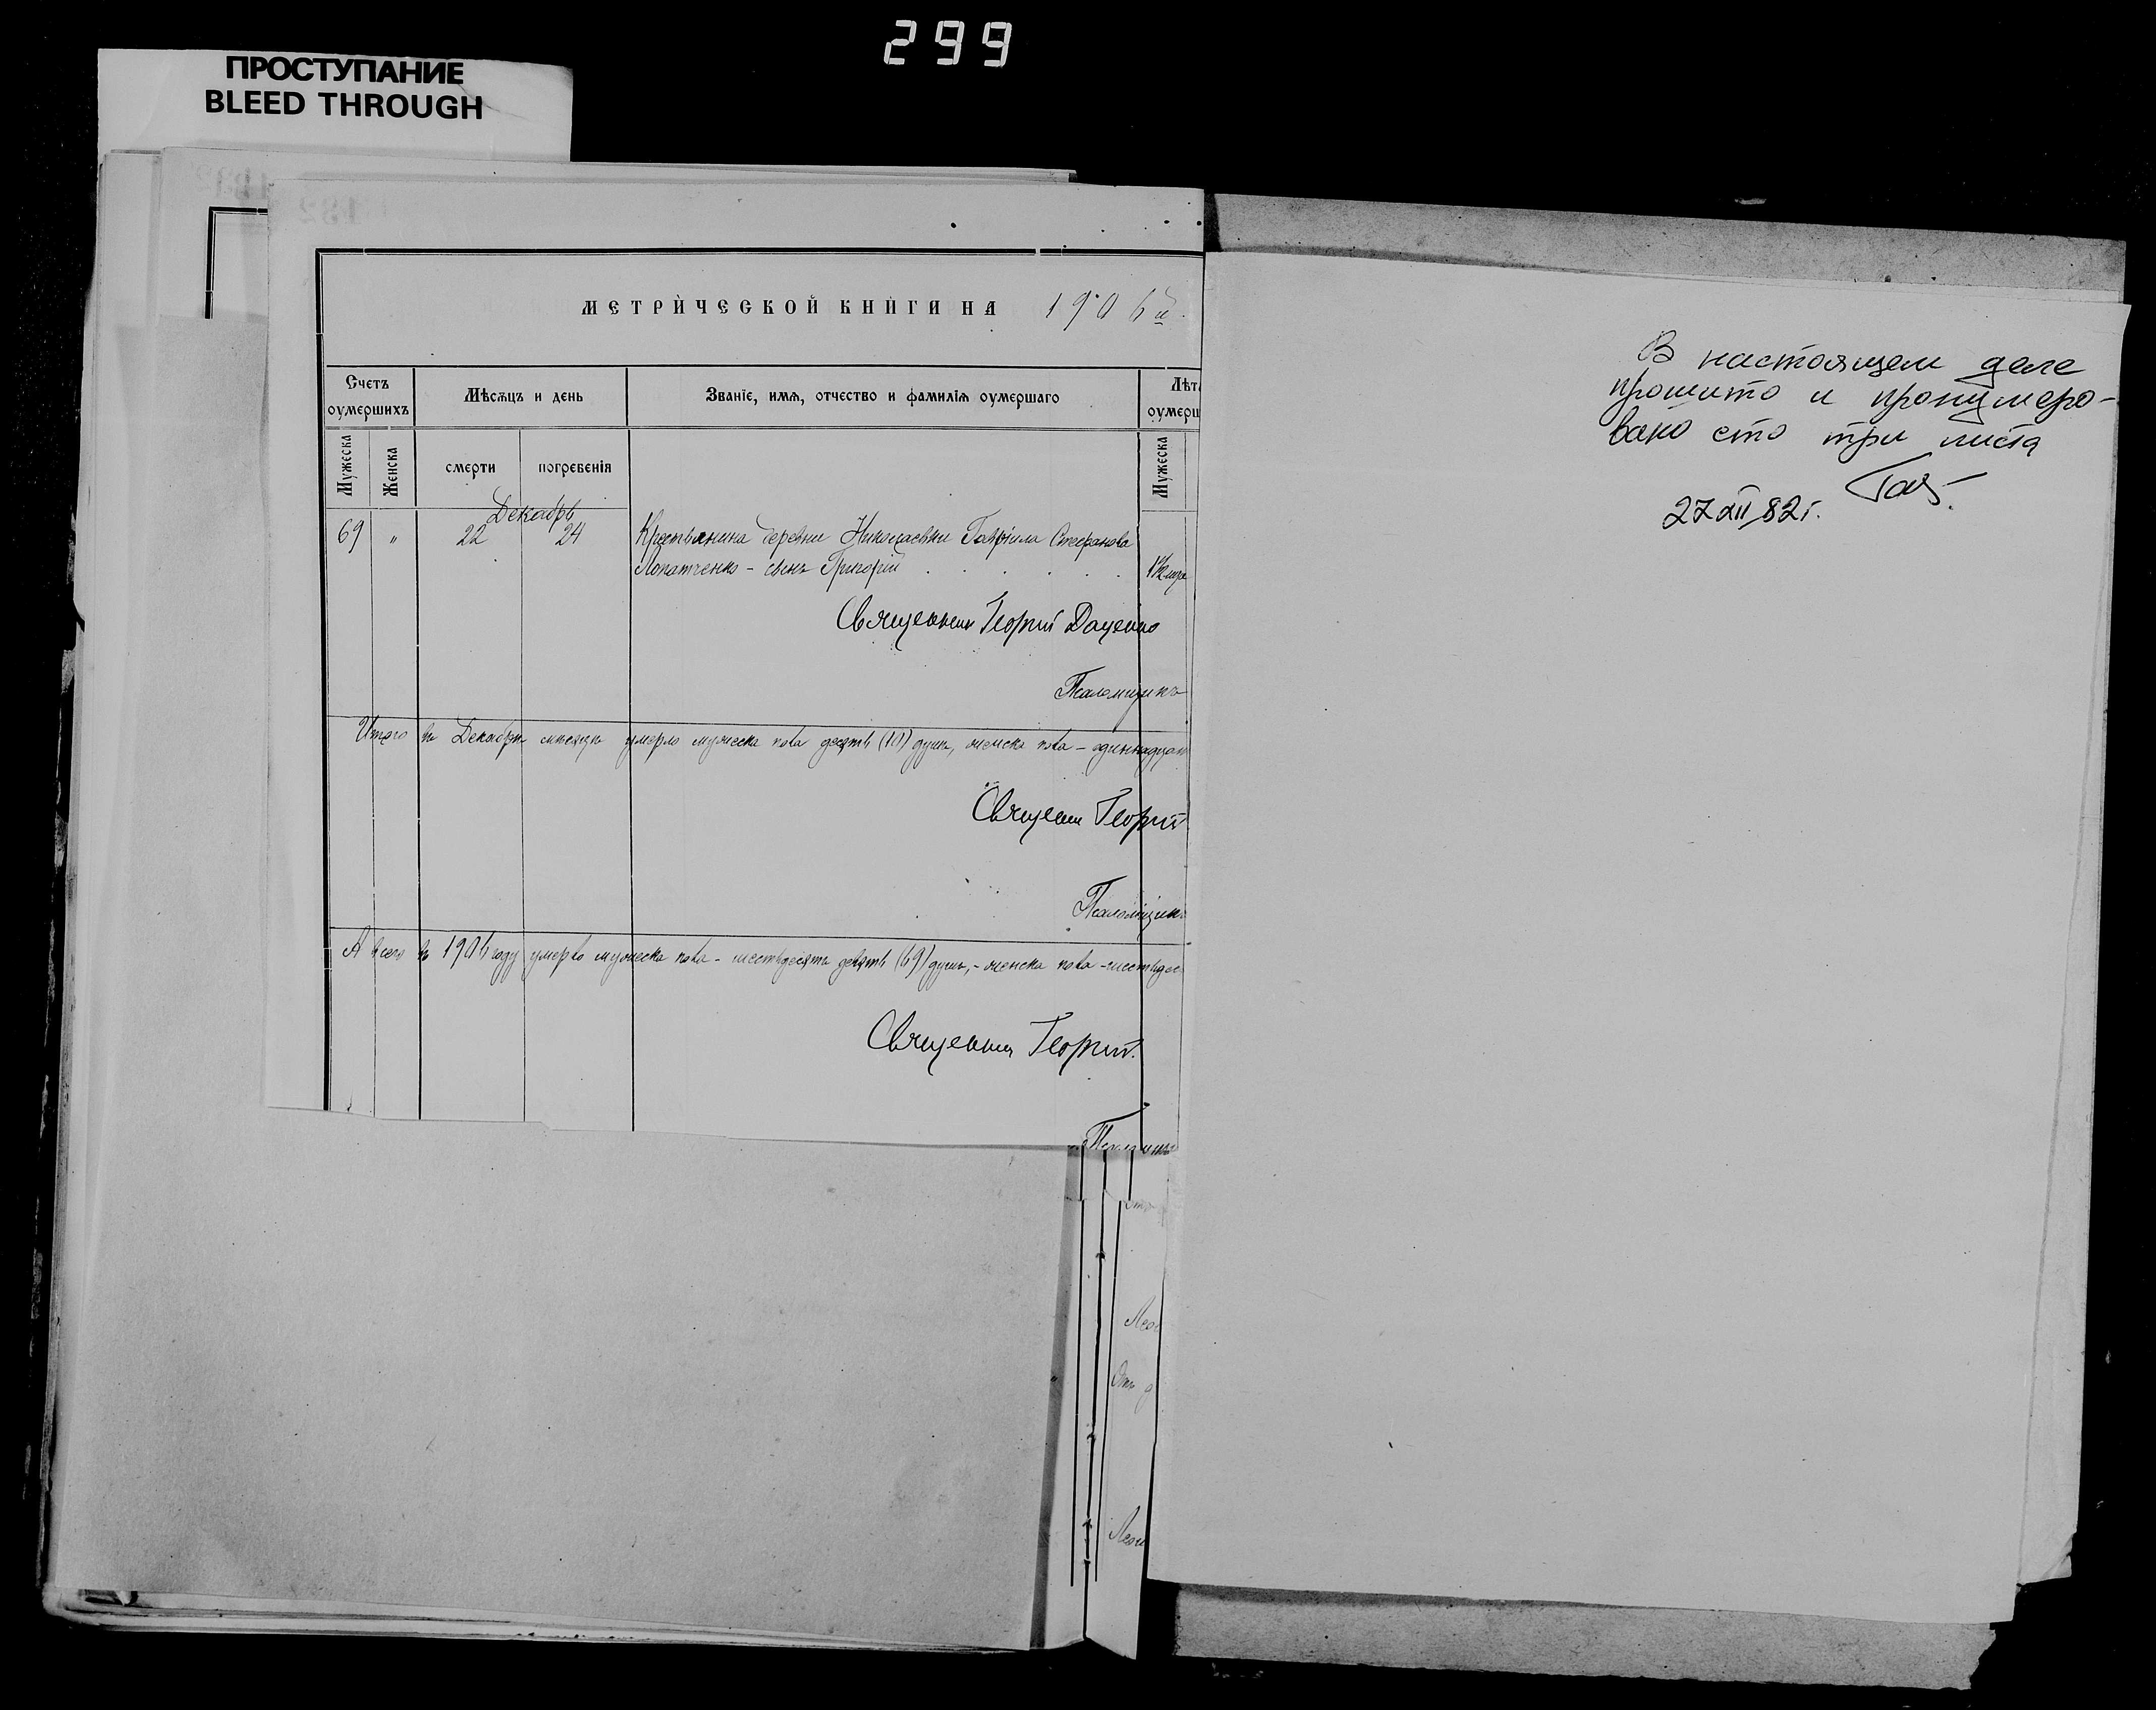 299
ПРОСТУПАНИЕ
BLEED THROUGH
МЕТРИЧЕСКОЙ КНИГИ НА 1906 й.
Счетъ оумершихъ
Мѣсяцъ и день
Званіе, имя, отчество и фамилія оумершаго
Лѣта оумерш
Мужеска
Женска
смерти
погребенія
Мужеска
Декабрь
69 " 22 24 Крестьянина деревни Николаевки Гавріила Стефанова
Лопатченко - сынъ Григорій 1½
Священник Георгий Даценко
Псаломщикъ
Итого въ Декабрѣ мѣсяцѣ умерло мужеска пола десять (10) душъ, женска пола - одиннадцат
Священник Георгий
Псаломщикъ
А всего въ 1906 году умерло мужеска пола - шестьдесятъ девять (69) душъ, - женска пола - шестьдес
Священник Георгий
Псаломщикъ
В настоящем деле
прошито и пронумеро-
вано сто три листа
27 XII 82 г.